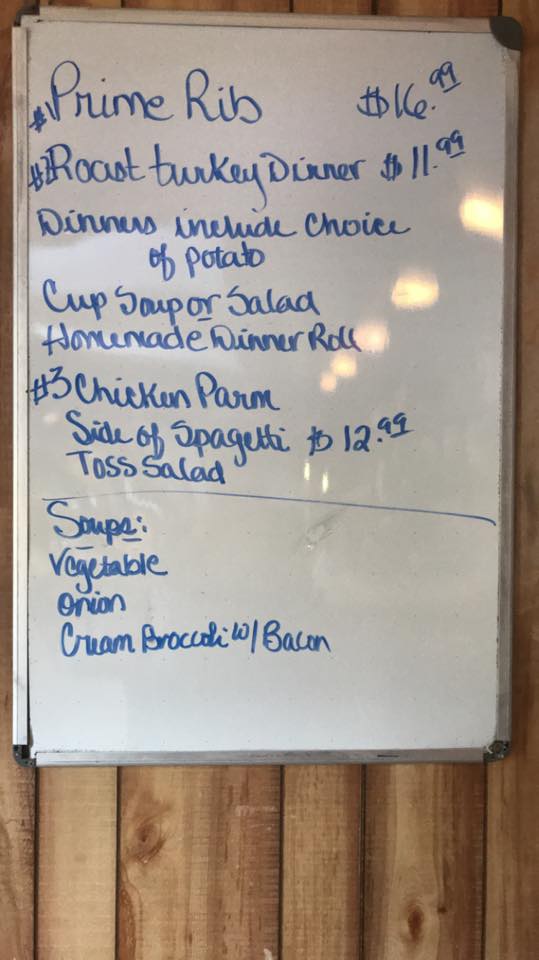 #1 Prime Rib $16.99
#2 Roast turkey Dinner $11.99
Dinners include Choice
of potato
Cup Soup or Salad
Homemade Dinner Roll
#3 Chicken Parm
Side of Spagetti $12.99
Toss Salad
Soups:
Vegetable
onion
Cream Broccoli w/ Bacon